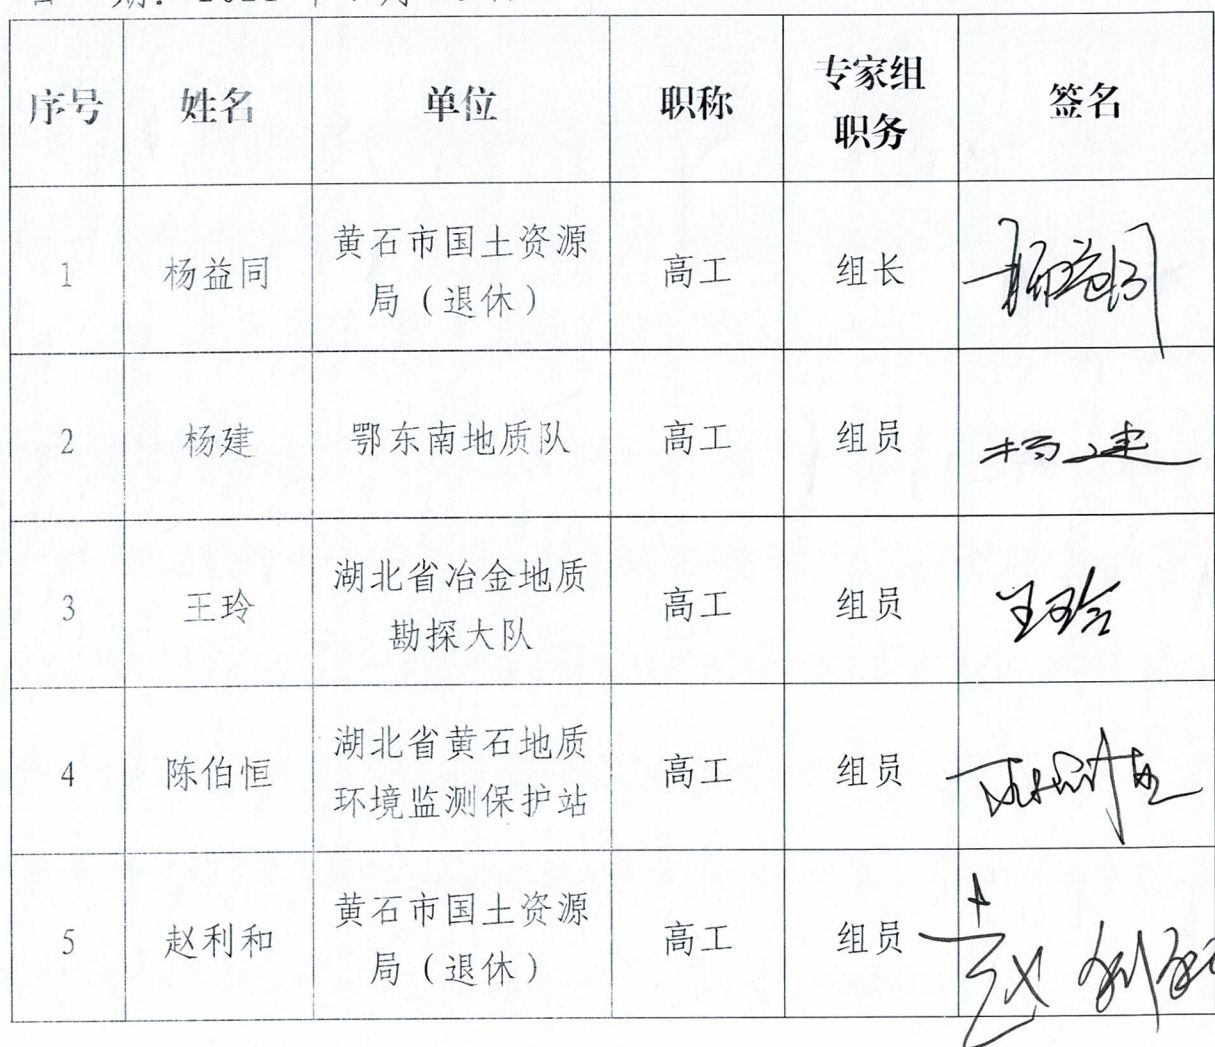 序号 姓名 单位 职称 专家组职务 签名
1 杨益同 黄石市国土资源局（退休） 高工 组长 杨益同
2 杨建 鄂东南地质队 高工 组员 杨建
3 王玲 湖北省冶金地质勘探大队 高工 组员 王玲
4 陈伯恒 湖北省黄石地质环境监测保护站 高工 组员 陈伯恒
5 赵利和 黄石市国土资源局（退休） 高工 组员 赵利和